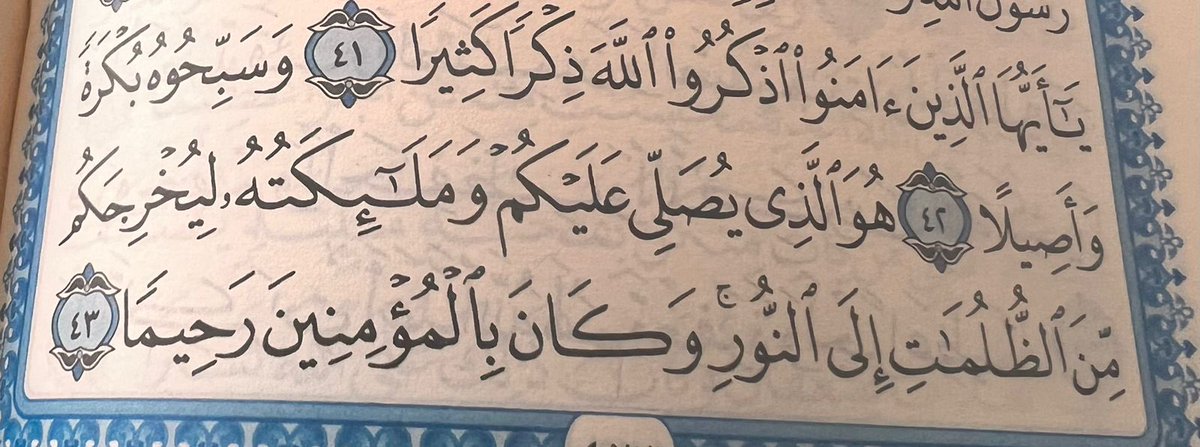 رسول الله
يَـٰٓأَيُّهَا ٱلَّذِينَ ءَامَنُوا۟ ٱذْكُرُوا۟ ٱللَّهَ ذِكْرًا كَثِيرًا ٤١ وَسَبِّحُوهُ بُكْرَةً
وَأَصِيلًا ٤٢ هُوَ ٱلَّذِى يُصَلِّى عَلَيْكُمْ وَمَلَـٰٓئِكَتُهُۥ لِيُخْرِجَكُم
مِّنَ ٱلظُّلُمَـٰتِ إِلَى ٱلنُّورِ ۚ وَكَانَ بِٱلْمُؤْمِنِينَ رَحِيمًا ٤٣